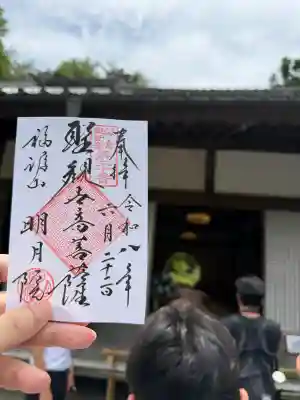 奉拝
令和八年
六月二十一日
聖観世音菩薩
福源山
明月院